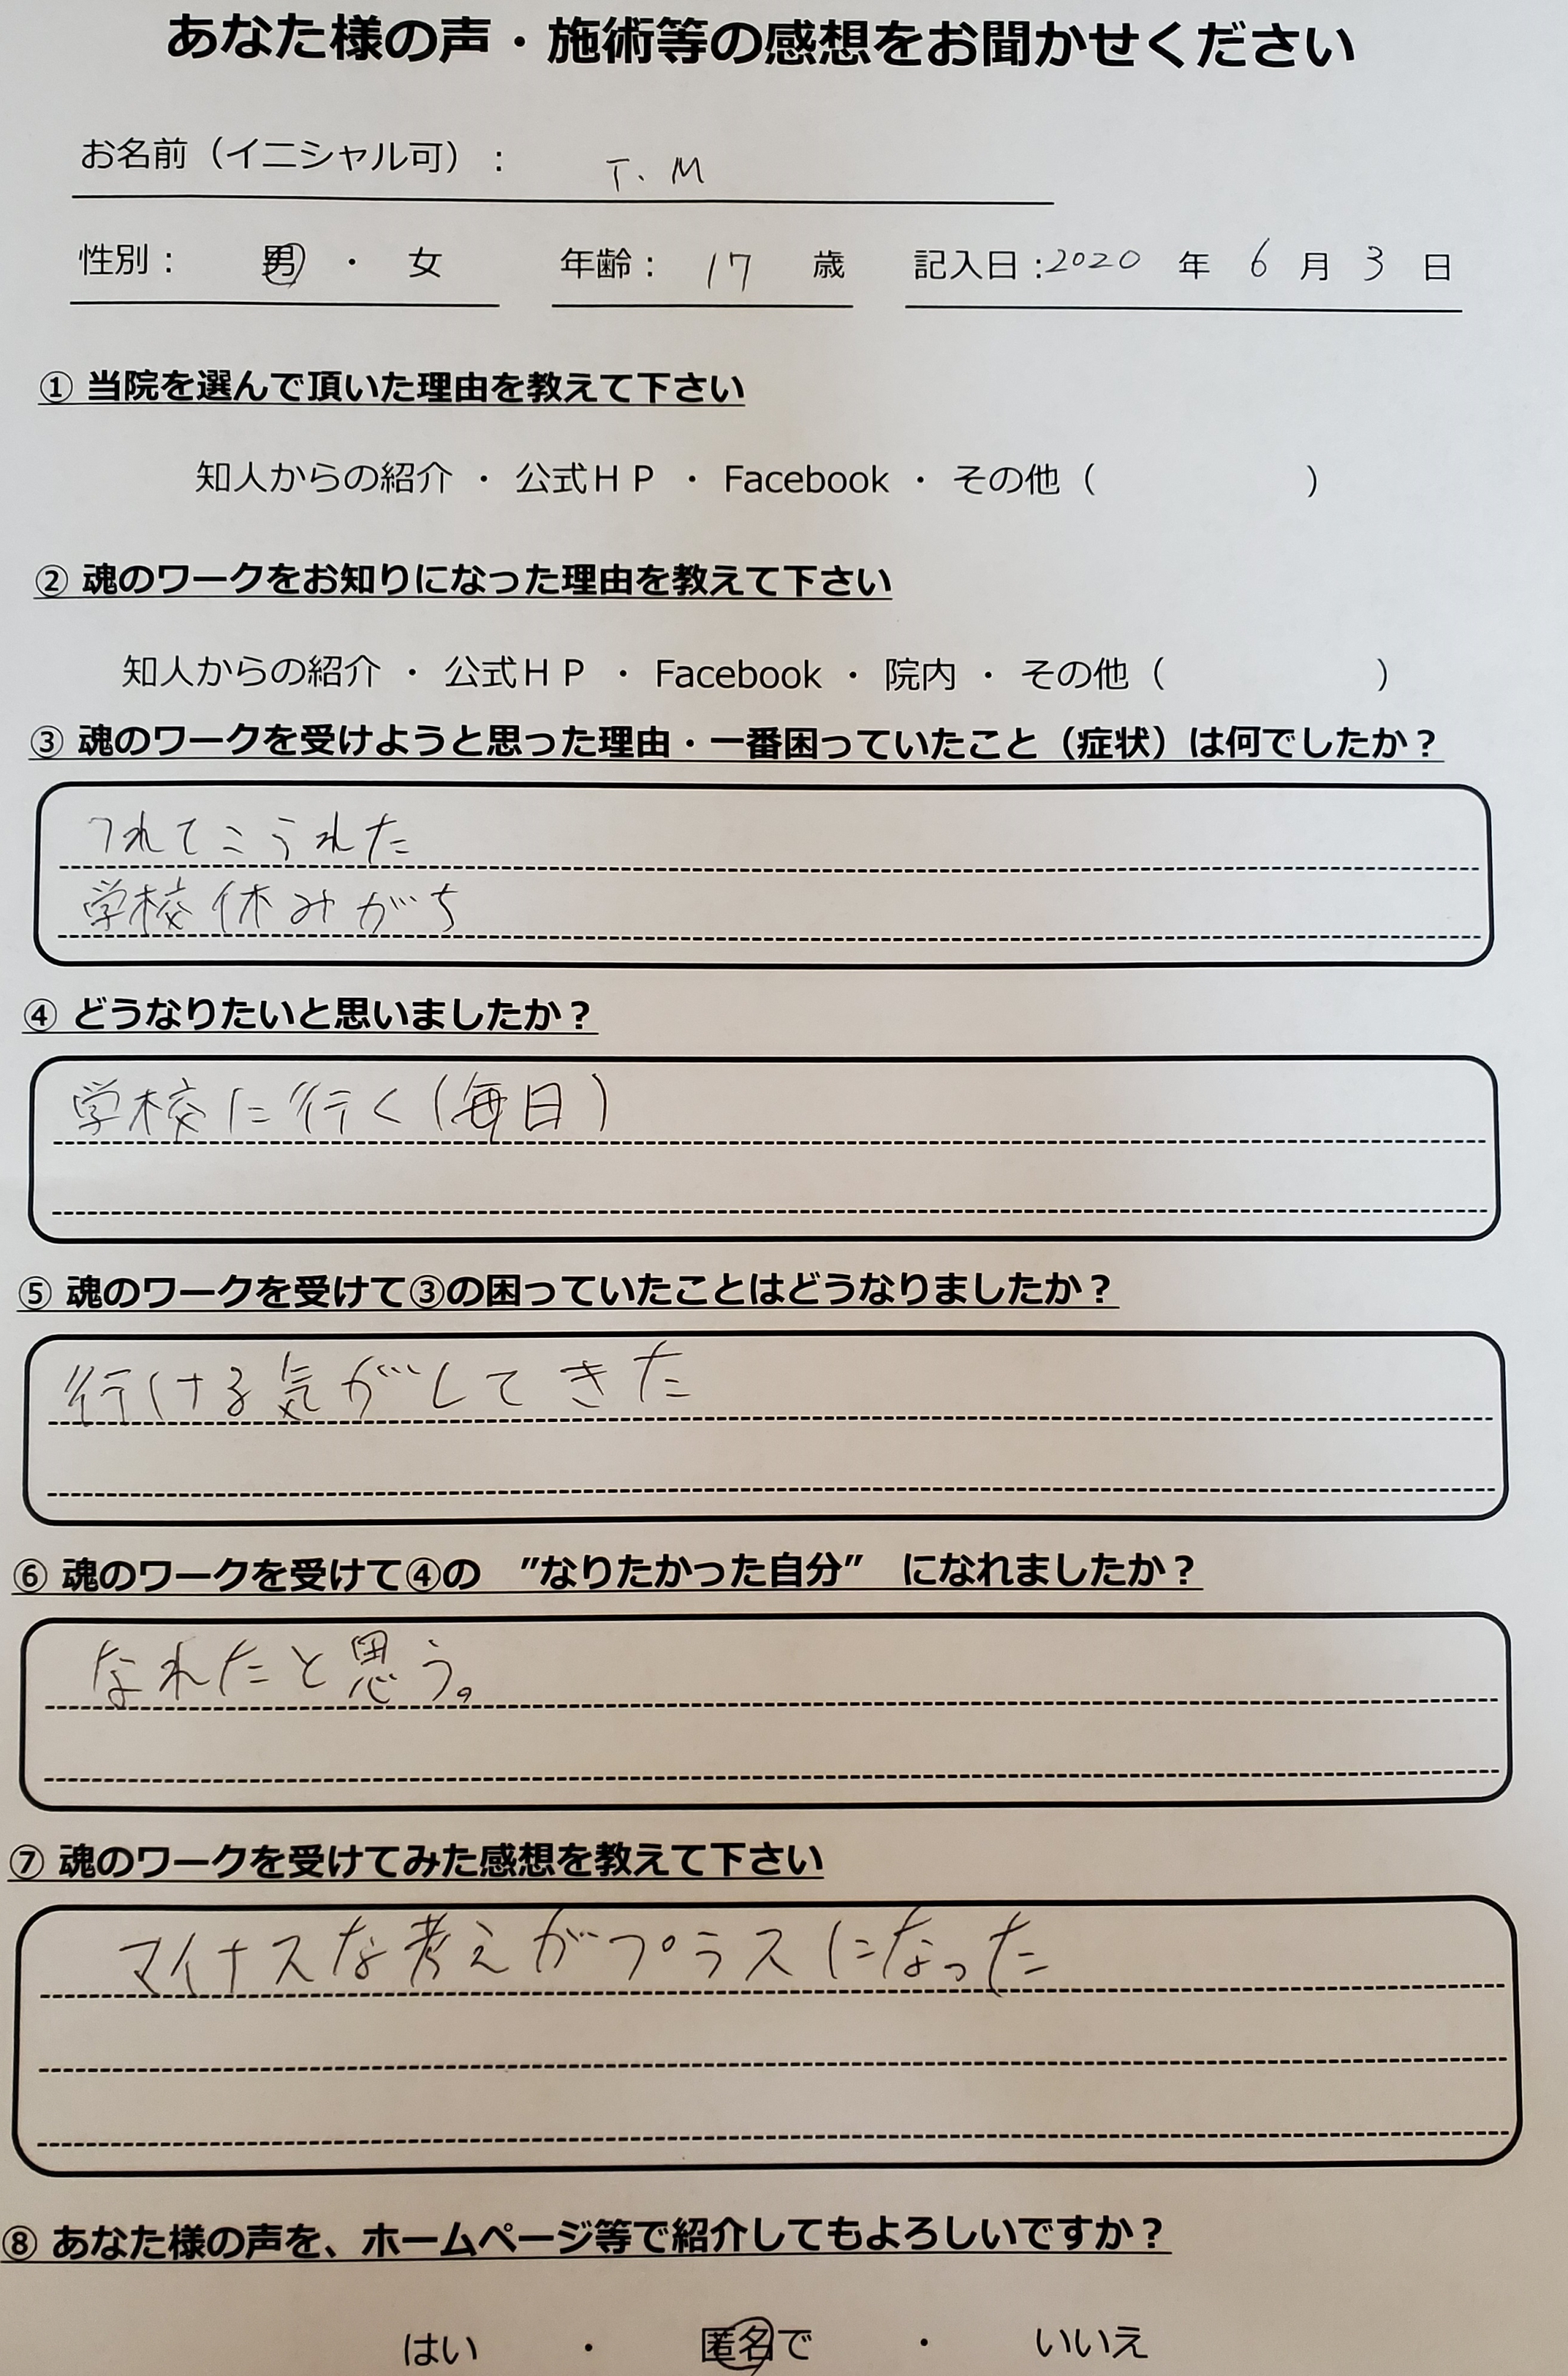 あなた様の声・施術等の感想をお聞かせください
お名前（イニシャル可）： T.M
性別： 男 ・ 女 年齢： 17 歳 記入日：2020 年 6 月 3 日
① 当院を選んで頂いた理由を教えて下さい
知人からの紹介 ・ 公式ＨＰ ・ Facebook ・ その他（ ）
② 魂のワークをお知りになった理由を教えて下さい
知人からの紹介 ・ 公式ＨＰ ・ Facebook ・ 院内 ・ その他（ ）
③ 魂のワークを受けようと思った理由・一番困っていたこと（症状）は何でしたか？
つれてこうれた
学校休みがち
④ どうなりたいと思いましたか？
学校に行く(毎日)
⑤ 魂のワークを受けて③の困っていたことはどうなりましたか？
行ける気がしてきた
⑥ 魂のワークを受けて④の ”なりたかった自分” になれましたか？
なれたと思う。
⑦ 魂のワークを受けてみた感想を教えて下さい
マイナスな考えがプラスになった
⑧ あなた様の声を、ホームページ等で紹介してもよろしいですか？
はい ・ 匿名で ・ いいえ